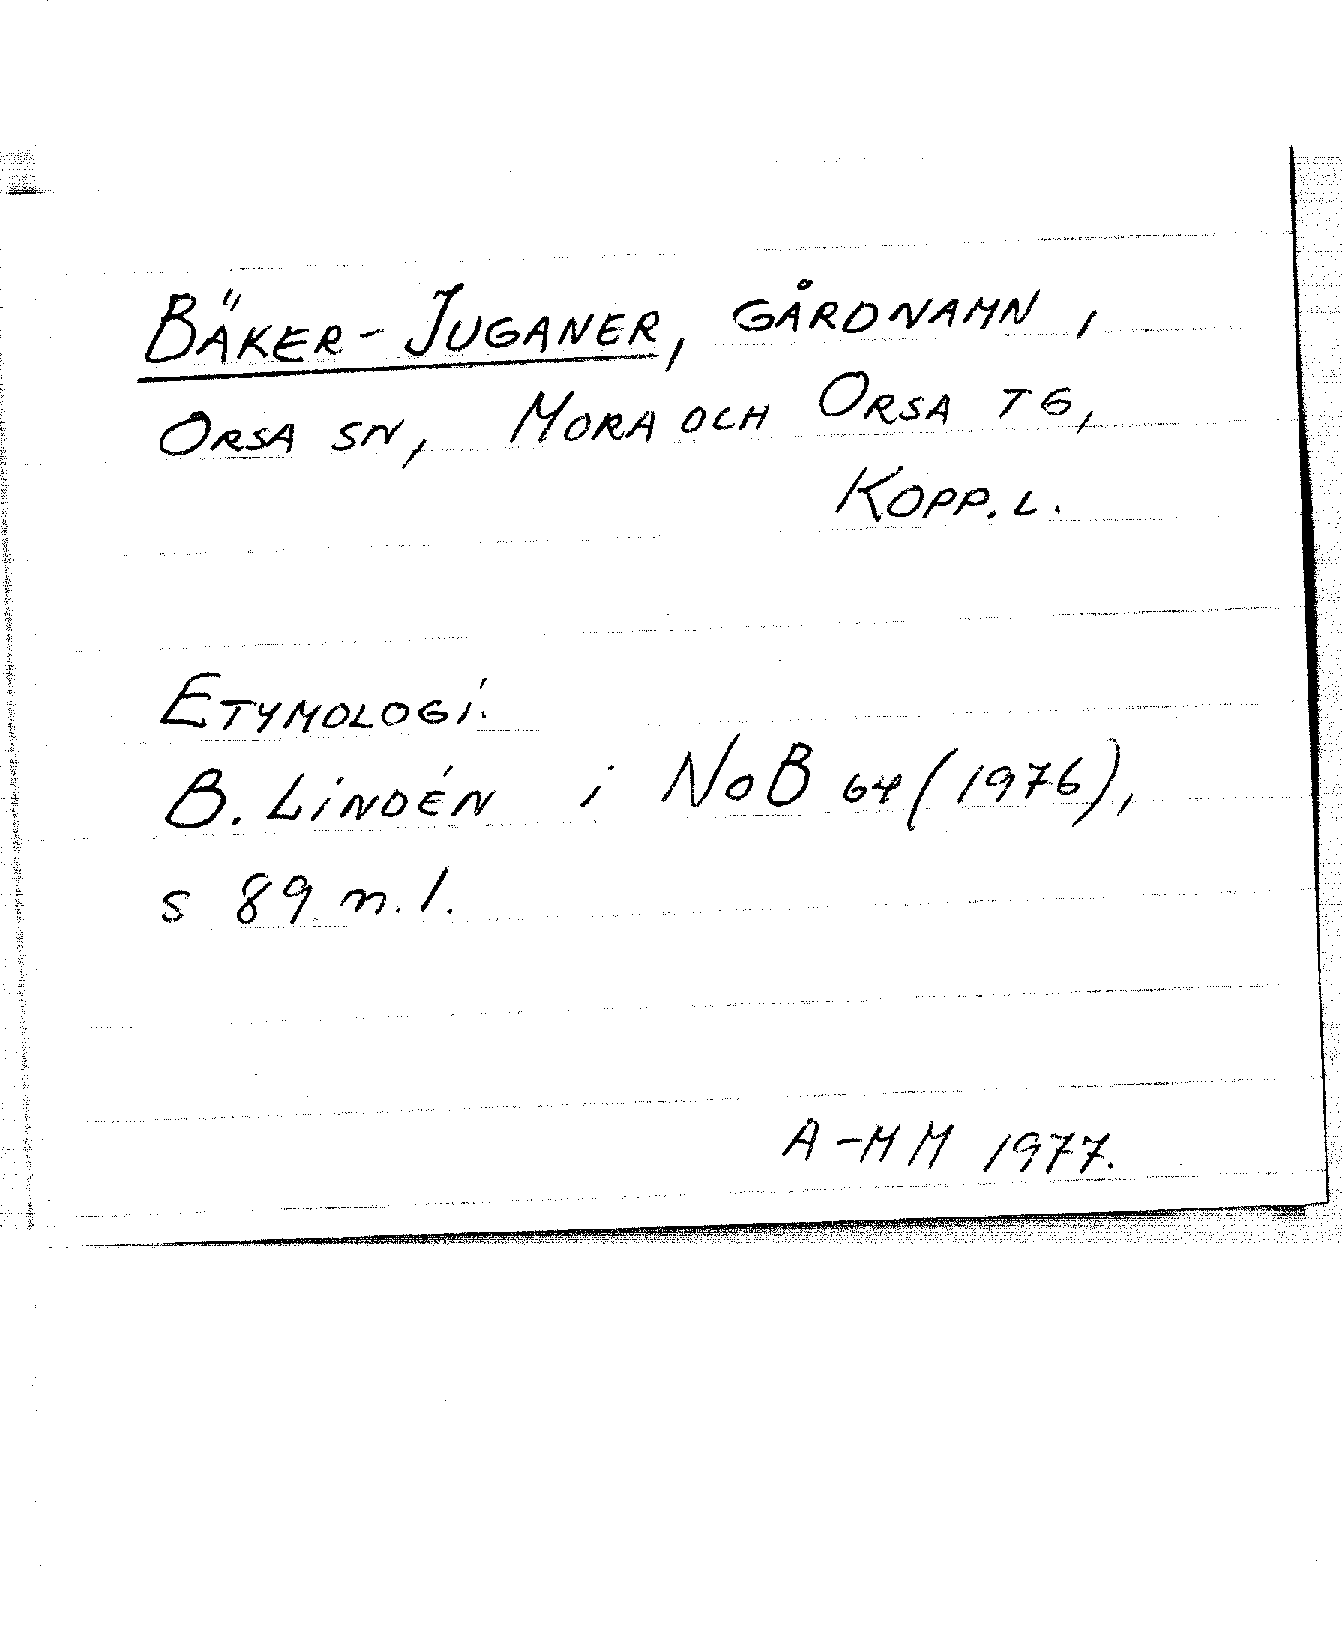 BÄKER-JUGANER, GÅRDNAMN,
ORSA SN, MORA OCH ORSA TG,
KOPP. L.
ETYMOLOGI.
B. LINDÉN i NoB 64 (1976),
s 89 n. 1.
A-MM 1977.